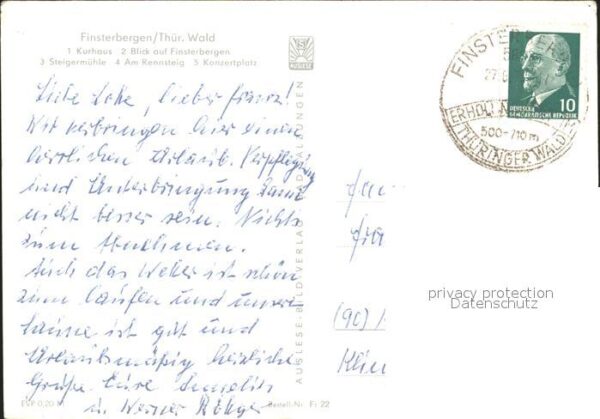 Finsterbergen/Thür. Wald
1 Kurhaus 2 Blick auf Finsterbergen
3 Steigermühle 4 Am Rennsteig 5 Konzertplatz
AUSLESE
Liebe Lore, lieber Franz!
Wir verbringen hier einen
herrlichen Urlaub. Verpflegung
und Unterbringung kann
nicht besser sein. Nichts
zum Abnehmen.
Auch das Wetter ist schön
zum laufen und unsere
Laune ist gut und
Urlaubsmäßig herzliche
Grüße Eure
u. Werner
EVP 0,20
Bestell-Nr. F1 22
AUSLESE-BILD-VERLAG
FINSTERBERGEN
27.
ERHOLU
500-710m
THÜRINGER WALD
DEUTSCHE
DEMOKRATISCHE REPUBLIK
10
(90)
privacy protection
Datenschutz